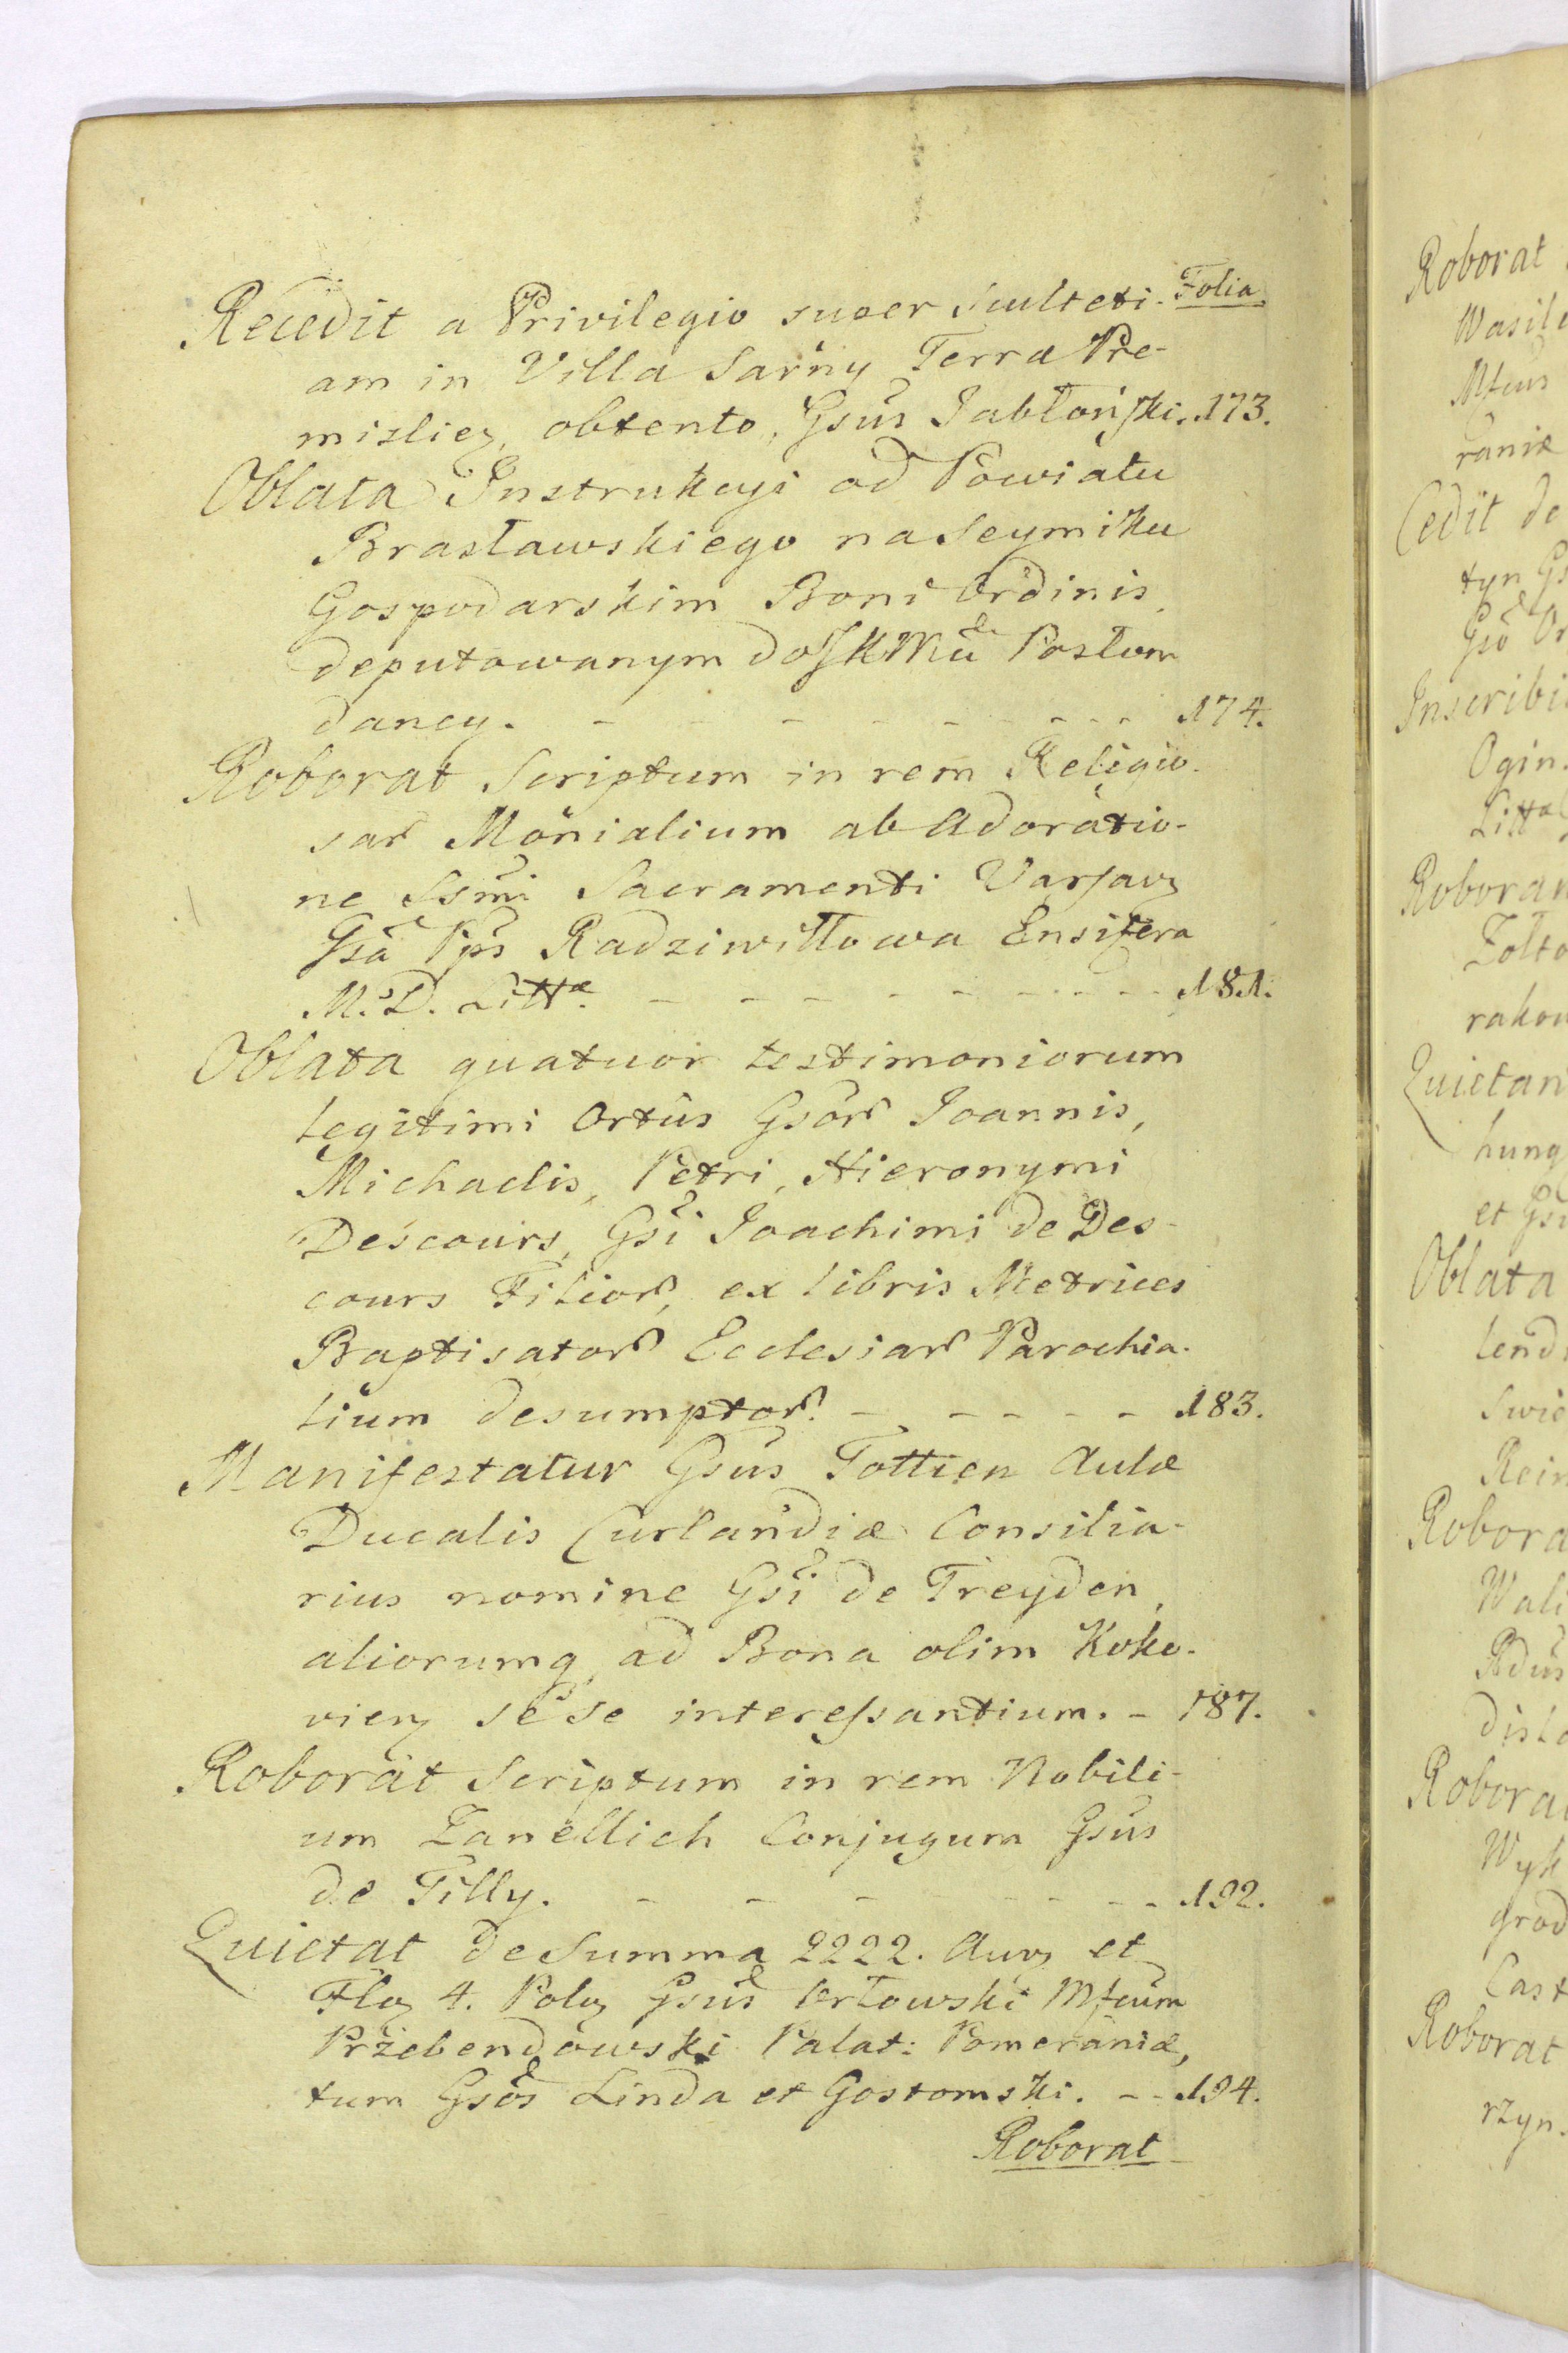 Folia
Recedit a Privilegio super Sculteti-
am in Villa Sarny Terræ Pre-
misliez, obtento, Gsus Jabłoński. 173.
Oblata Instrukcyi od Powiatu
Brasławskiego na Seymiku
Gospodarskim Boni Ordinis,
deputowanym do JKMci Posłom
daney. - - - - - - - - - 174.
Roborat Scriptum in rem Religio-
sar Monialium ab Adoratio-
ne Ssmi Sacramenti Varsav
Gsa Pps Radziwiłłowa Ensifera
M. D. Littæ. - - - - - - - - - 181.
Oblata quatuor testimoniorum
legitimi Ortus Gsor Joannis,
Michaelis, Petri, Hieronymi
Descours, Gsi Joachimi de Des-
cours Filior, ex libris Metrices
Baptisator Ecclesiar Parochia-
lium desumptor. - - - - - - 183.
Manifestatur Gsus Tottien Aulæ
Ducalis Curlandiæ Consilia-
rius nomine Gsi de Treyden,
aliorumq, ad Bona olim Koko-
viez sese interessantium. - 187.
Roborat Scriptum in rem Nobili-
um Zanellich Conjugum Gsus
de Tilly. - - - - - - - 192.
Quietat de Summa 2222. Aur et
Flo 4. Pol Gsus Orłowski Mfcum
Przebendowski Palat: Pomeraniæ,
tum Gsos Linda et Gostomski. - - 194.
Roborat
Roborat
Wasile
Mfcus
raniæ
Cedit de
tyn Gs
Gso Or
Inscribi
Ogin.
Littæ
Roboran
Zolto
rakow
Quietan
hung
et Gsu
Oblata
lend
Swie
Rein
Robora
Wali
disla
Robora
Wyk
grod
Cast
Roborat
rzyn.